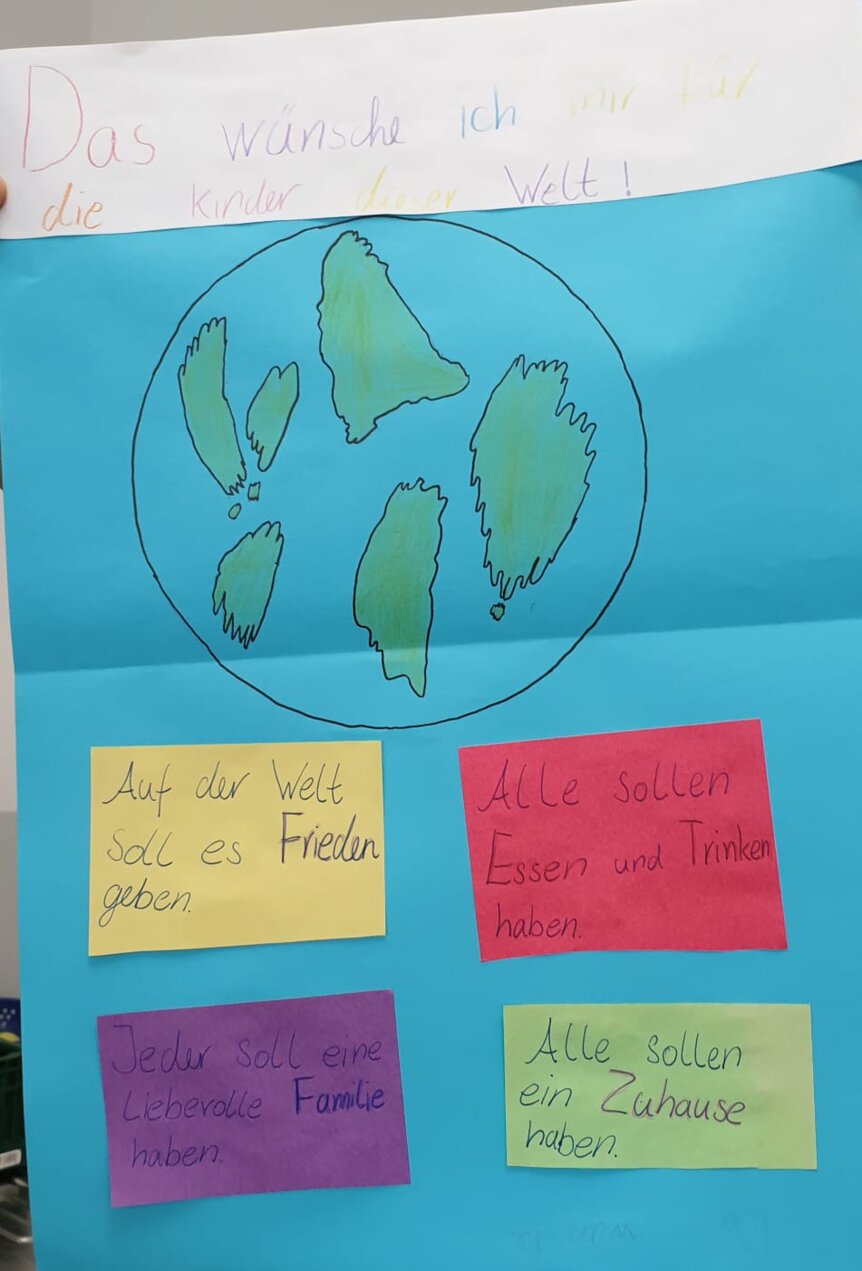 Das wünsche ich mir für
die kinder dieser Welt!
Auf der Welt
soll es Frieden
geben.
Alle sollen
Essen und Trinken
haben.
Jeder soll eine
Liebevolle Familie
haben.
Alle sollen
ein Zuhause
haben.